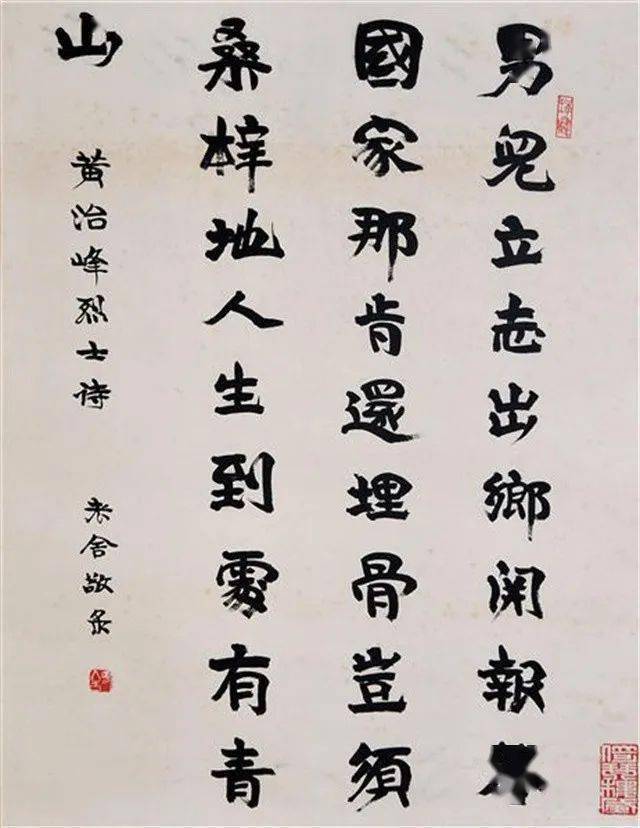 男兒立志出鄉関報
國家那肯還埋骨豈須
桑梓地人生到處有青
山
黄治峰烈士诗
老舍敬录